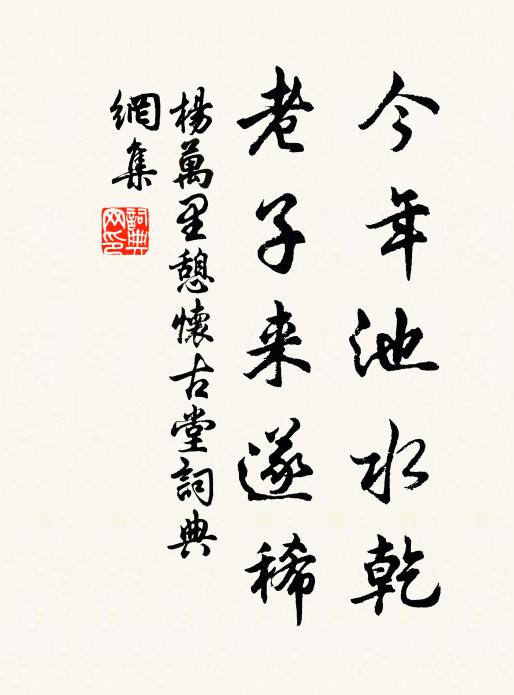 今年池水乾
老子来遂稀
楊萬里憩懷古堂詞典
網集
詞典
网印